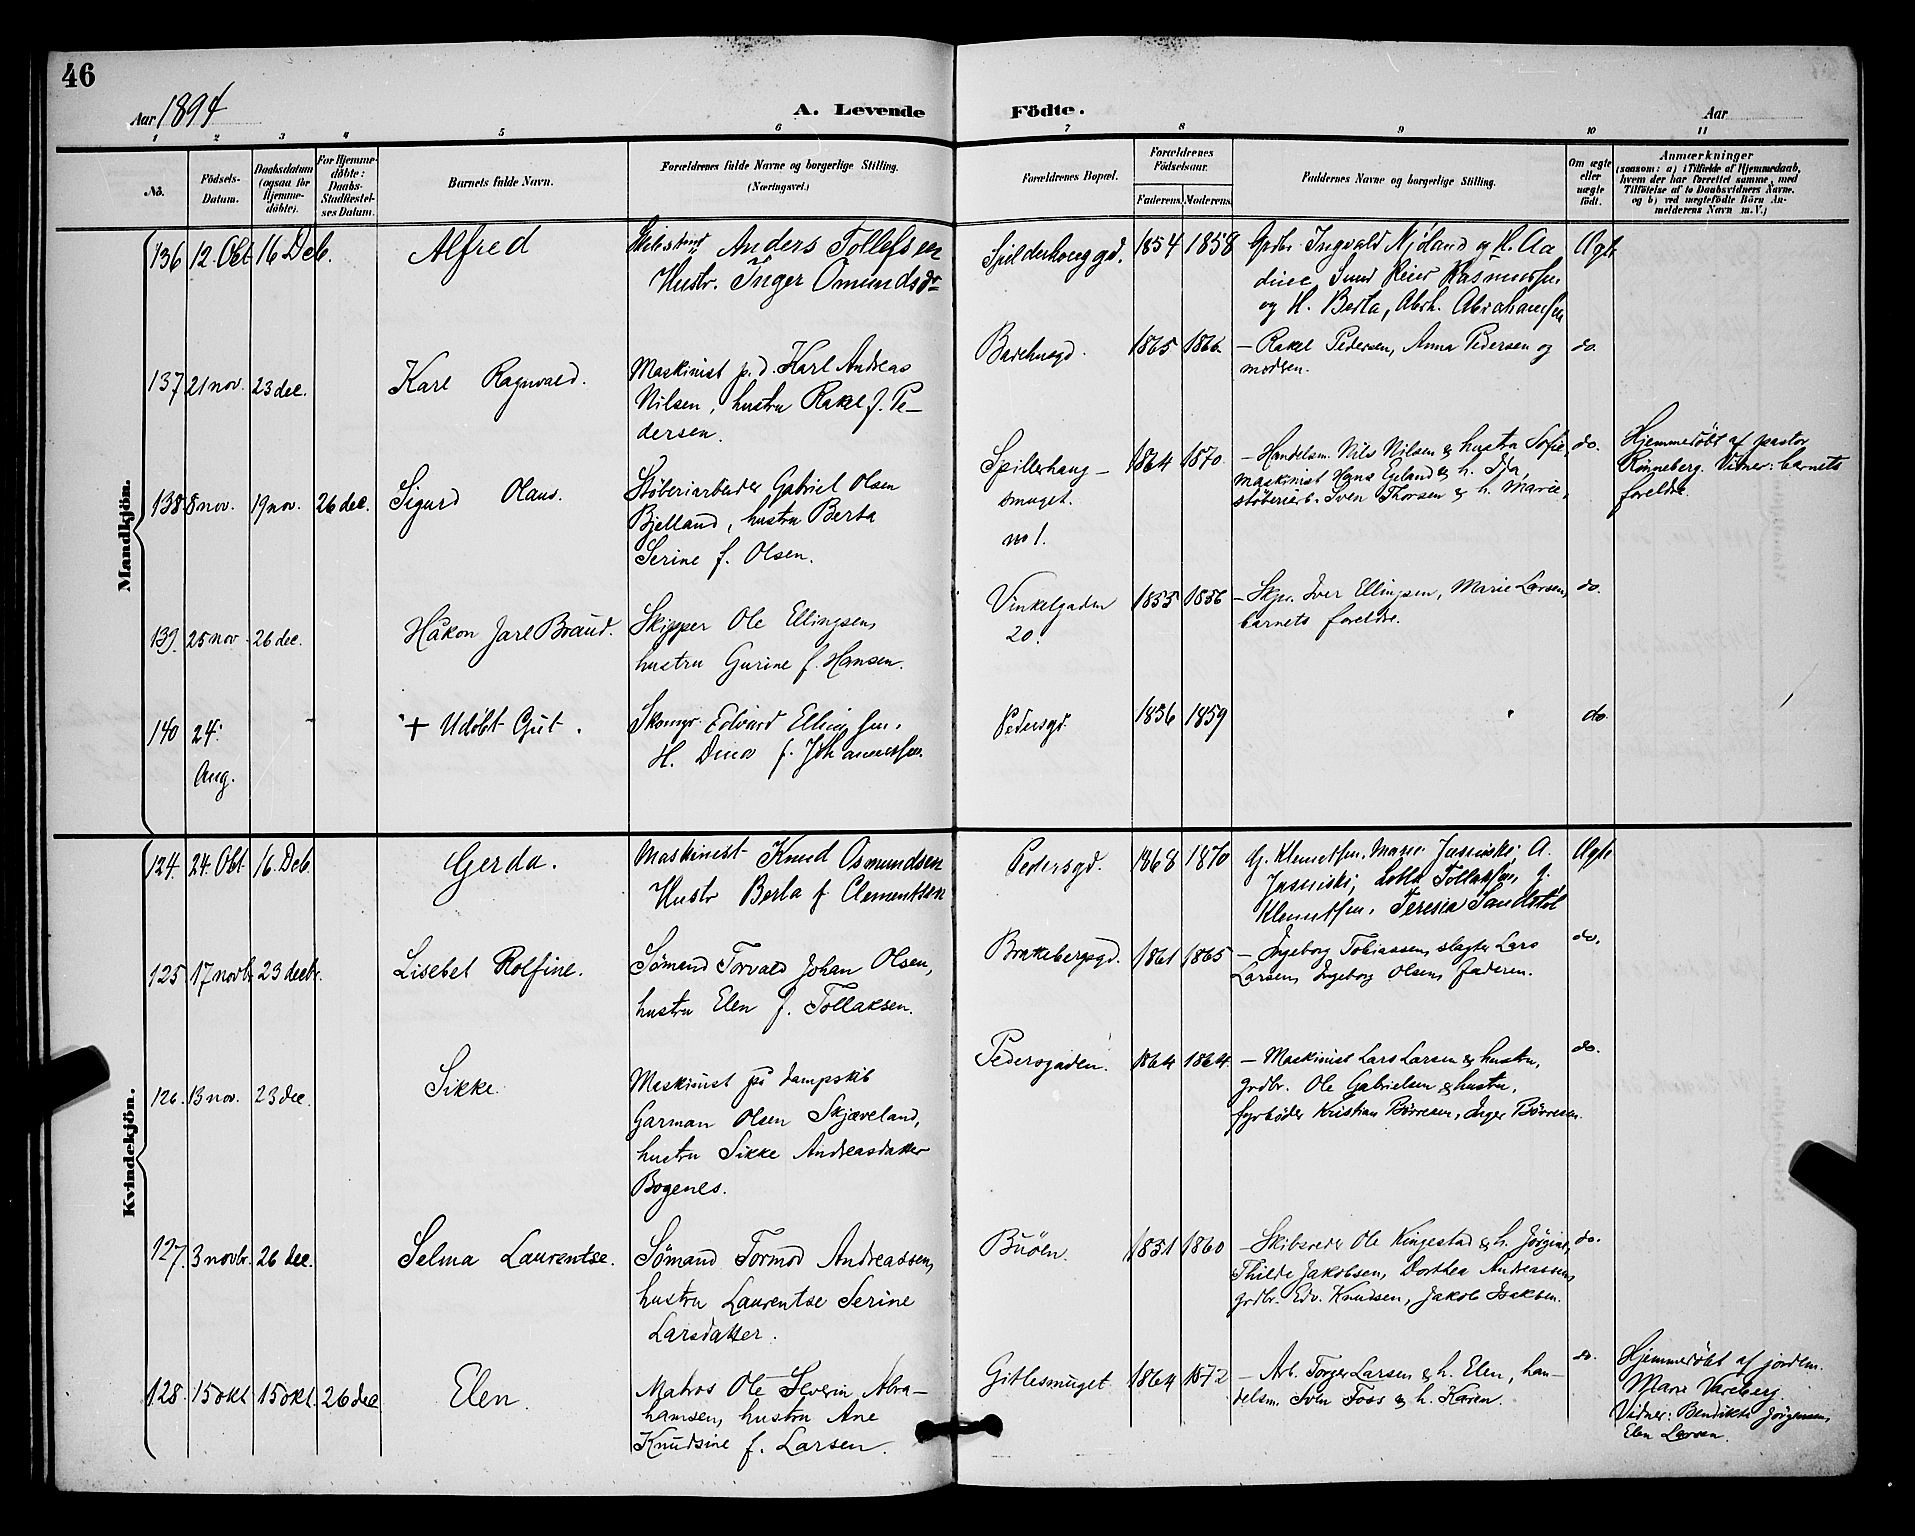 46
Aar 1894
A. Levende Födte.
Aar
1 2 3 4 5 6 7 8 9 10 11
No.
Födsels-Datum.
Daabsdatum (ogsaa for Hjemme-döbte).
For Hjemme-döbte: Daabs-Stadfæstelses Datum.
Barnets fulde Navn.
Forældrenes fulde Navne og borgerlige Stilling.
(Næringsvei.)
Forældrenes Bopæl.
Forældrenes Födselsaar.
Faderens. Moderens.
Faddernes Navne og borgerlige Stilling.
Om ægte eller uægte födt.
Anmærkninger
(saasom: a) i Tilfælde af Hjemmedaab,
hvem der har forrettet samme, med
Tilföielse af to Daabsvidners Navne.
og b) ved uægtefödte Börn An-
melderens Navn m.V.)
Mandkjön.
136 12 Okt 16 Deb. Alfred Anders Tollefsen 1854 1858 Grdbr. Ingvald Njaland og H. Aa
Hustr. Inger Omundsdr
og H. Berta, Abrh. Abrahamsen
137 21 nov. 23 dec. Karl Ragnvald. Maskinist p.d. Karl Andreas 1865 1866 – Rakel Pedersen, Anna Pedersen og do.
Nilsen, hustru Rakel f. Pe-
modren.
dersen.
138 8 nov. 19 nov. 26 dec. Sigurd Olaus. Støberiarbeider Gabriel Olsen Spillerhaug- 1864 1870 – Handelsm. Nils Nilsen & hustru Sofie, do. Hjemmedøbt af pastor
Bjelland, hustru Berta smuget. maskinist Hans Egeland & h. Ida, Rönneberg. Vidner: barnets
Serine f. Olsen. no 1. støberiarb. Sven Thorsen & h. Marie. foreldre.
139. 25 nov. 26 dec. Håkon Jarl Braud. Skipper Ole Ellingsen, Vinkelgaden 1855 1856 – Skpr. Iver Ellingsen, Marie Larsen, do.
hustru Gurine f. Hansen. 20. barnets foreldre.
140 24. Aug. + Udöbt Gut. Skomgr. Edvard Ellingsen. Pedersgd. 1856 1859 do
H. f. Johannessen.
Kvindekjön.
124. 24. Okt 16. Deb. Gerda. Maskinist Knud Osmundsen Pedersgd. 1868 1870 G. Klemetsen, Marie A. Ægte
Hustr Berta f Clementsen Klemetsen, Teresia
125. 17 novb. 23 decbr. Lisebet Rolfine. Sömand Torvald Johan Olsen, Brakebergsgd. 1861 1865 – Ingeborg Tobiassen, slagter Lars do.
hustru Elen f. Tollaksen. Larsen, Ingeborg Olsen, faderen.
126. 13 nov. 23 dec. Sikke. Maskinist på dampskib Pedersgaden. 1864 1864 – Maskinist Lars Larsen & hustru, do.
Garman Olsen Skjæveland, grdbr. Ole Gabrielsen & hustru,
hustru Sikke Andreasdatter fyrbøder Kristian Børresen, Inger Børresen
Bogenes.
127. 3 novbr. 26 dec. Selma Laurentse. Sömand Tormod Andreassen, Buöen. 1851 1860 – Skibsreder Ole Kingestad & h. Jørgine, do.
hustru Laurentse Serine Thilde Jakobsen, Dorthea Andreassen,
Larsdatter. grdbr. Edv. Knudsen, Jakob Isaksen.
128. 15 okt 15 okt. 26 dec Elen. Matros Ole Severin Abra- Gitlesmuget. 1864 1872 – Arb. Torger Larsen & h. Elen, han- do. Hjemmedøbt af jordem.
hamsen, hustru Ane delsm. Sven Foss & h. Karen. Marie Vareberg.
Knudsine f. Larsen. Vidner: Bendikte Jørgensen,
Elen Larsen.